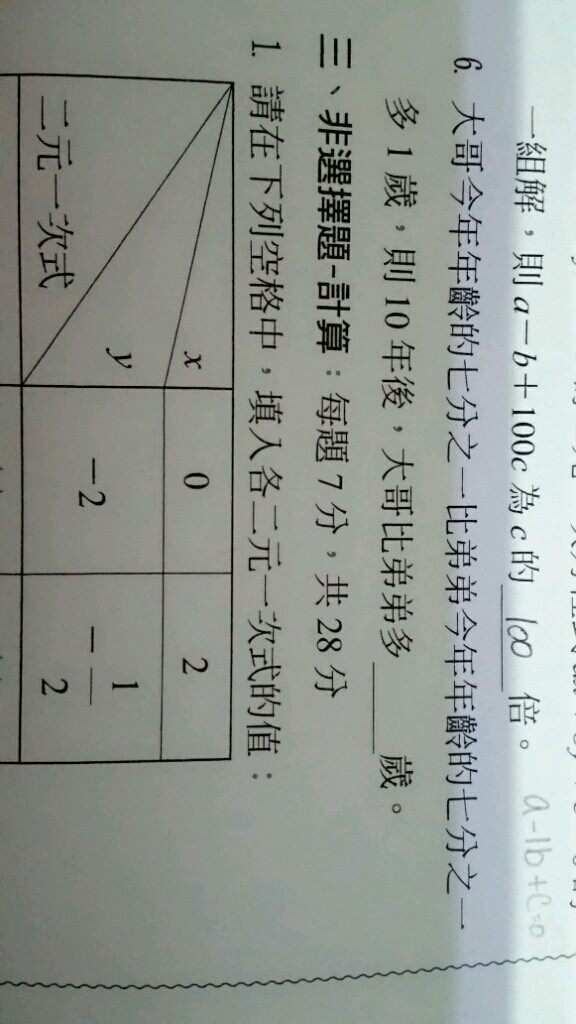 一組解，則a－b＋100c為c的 100 倍。
a-1b+c=0
6. 大哥今年年齡的七分之一比弟弟今年年齡的七分之一
多1歲，則10年後，大哥比弟弟多＿＿歲。
三、非選擇題-計算：每題7分，共28分
1. 請在下列空格中，填入各二元一次式的值：
x 0 2
y －2 －1/2
二元一次式